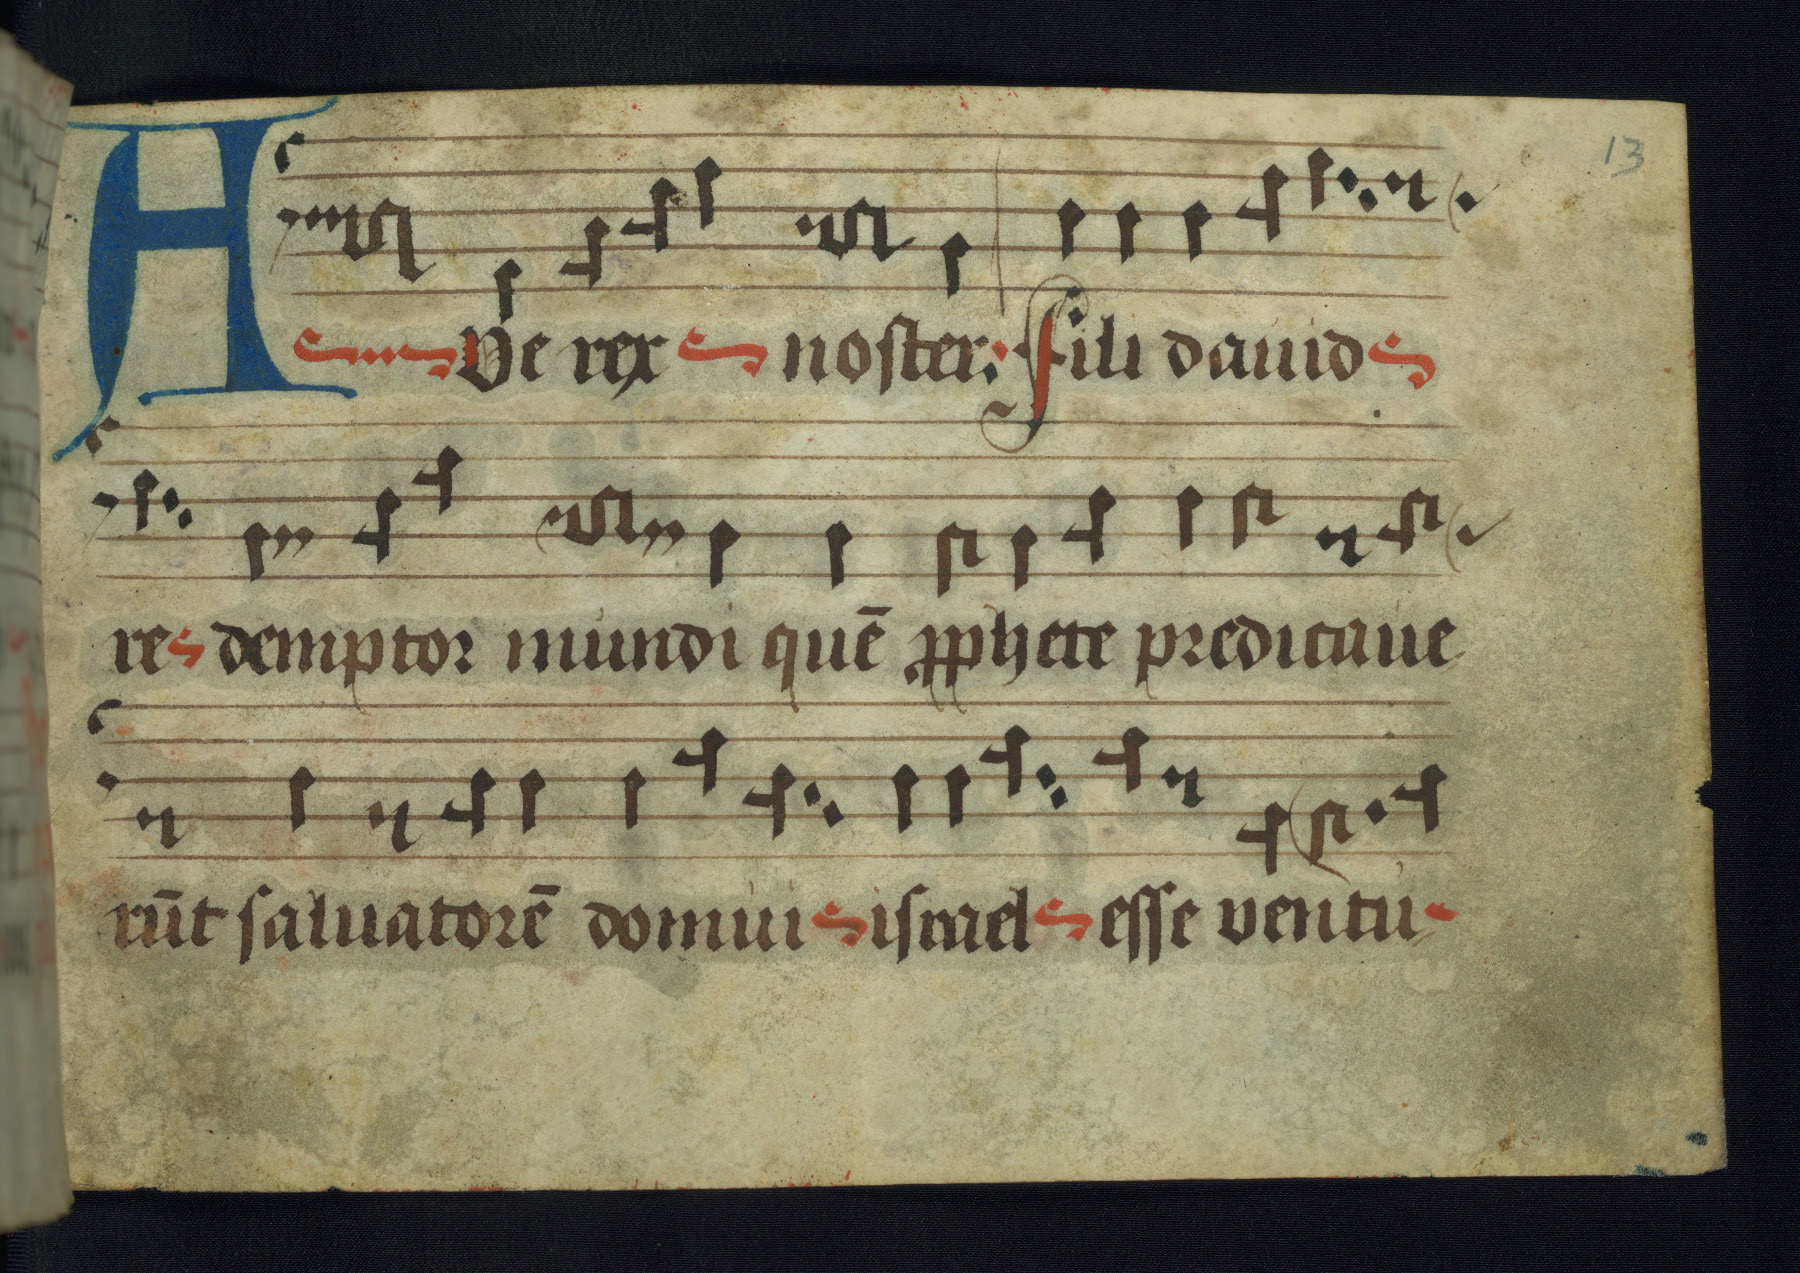 13
Ave rex noster: fili dauid
redemptor mundi quē ꝓphete predicaue
rūt saluatorē domui israel esse ventu-